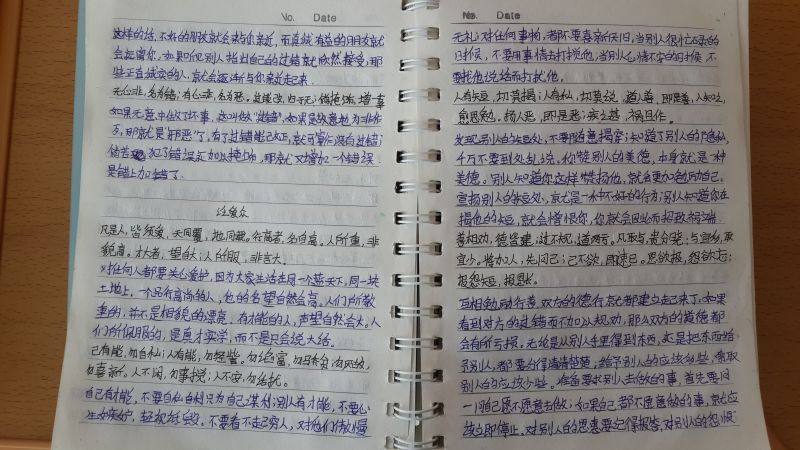 No. Date
这样的话,不好的朋友就会来与你亲近,而直诚有益的朋友就
会远离你,如果听见别人指出自己的过错就欣然接受,那
些正直诚实的人,就会逐渐与你亲近起来.
无心非,名为错;有心非,名为恶。过能改,归于无;倘掩饰,增一辜
如果无意中做了坏事,这叫做"过错",如果是故意地为非作
歹,那就是"邪恶"了。有了过错能改正,就可算作没有过错;
倘若犯了错误又加以掩饰,那就又增加一个错误
是错上加错了.
泛爱众
凡是人,皆须爱,天同覆,地同载。行高者,名自高。人所重,非
貌高。才大者,望自大;人所服,非言大。
对任何人都要关心爱护,因为大家生活在同一个蓝天下,同一块
土地上。一个品行高尚的人,他的名望自然会高。人们所敬
重的,并不是相貌的漂亮。有才能的人,声望自然会大。人
们所佩服的,是真才实学,而不是只会说大话。
己有能,勿自私;人有能,勿轻訾。勿谄富,勿骄贫;勿厌故,
勿喜新。人不闲,勿事搅;人不安,勿话扰。
自己有才能,不要自私自利只为自己谋利;别人有才能,不要心
生嫉妒,轻视诋毁。不要看不起穷人,对他们傲慢
No. Date
无礼;对任何事物,者都不要喜新厌旧,当别人很忙碌的
时候,不要用事情去打搅他,当别人心情不安的时候,不
要找他说话而打扰他。
人有短,切莫揭;人有私,切莫说。道人善,即是善;人知之,
愈思勉。扬人恶,即是恶;疾之甚,祸且作。
发现别人的短处,不要随意揭穿;知道了别人的隐私,
千万不要到处乱说。你赞别人的美德,本身就是一种
美德。别人知道你这样赞扬他,就会更加勉励自己。
宣扬别人的短处,就是一种不好的行为;别人知道你在
揭他的短,就会憎恨你,你就会因此而招致祸端
善相劝,德皆建;过不规,道两亏。凡取与,贵分晓;与宜多,取
宜少。将加人,先问己;己不欲,即速已。恩欲报,怨欲忘;
报怨短,报恩长。
互相勉励行善,双方的德行就都建立起来了。如果
看到对方的过错而不加以规劝,那么双方的道德都
会有所亏损,无论是从别人手里得到东西,还是把东西给
予别人,都要分得清清楚楚,给予别人的应该多些,索取
别人的应该少些。准备要求别人去做的事,首先要问
一问自己愿不愿意去做;如果自己都不愿意做的事,就应
该立即停止。对别人的恩惠要记得报答,对别人的怨恨